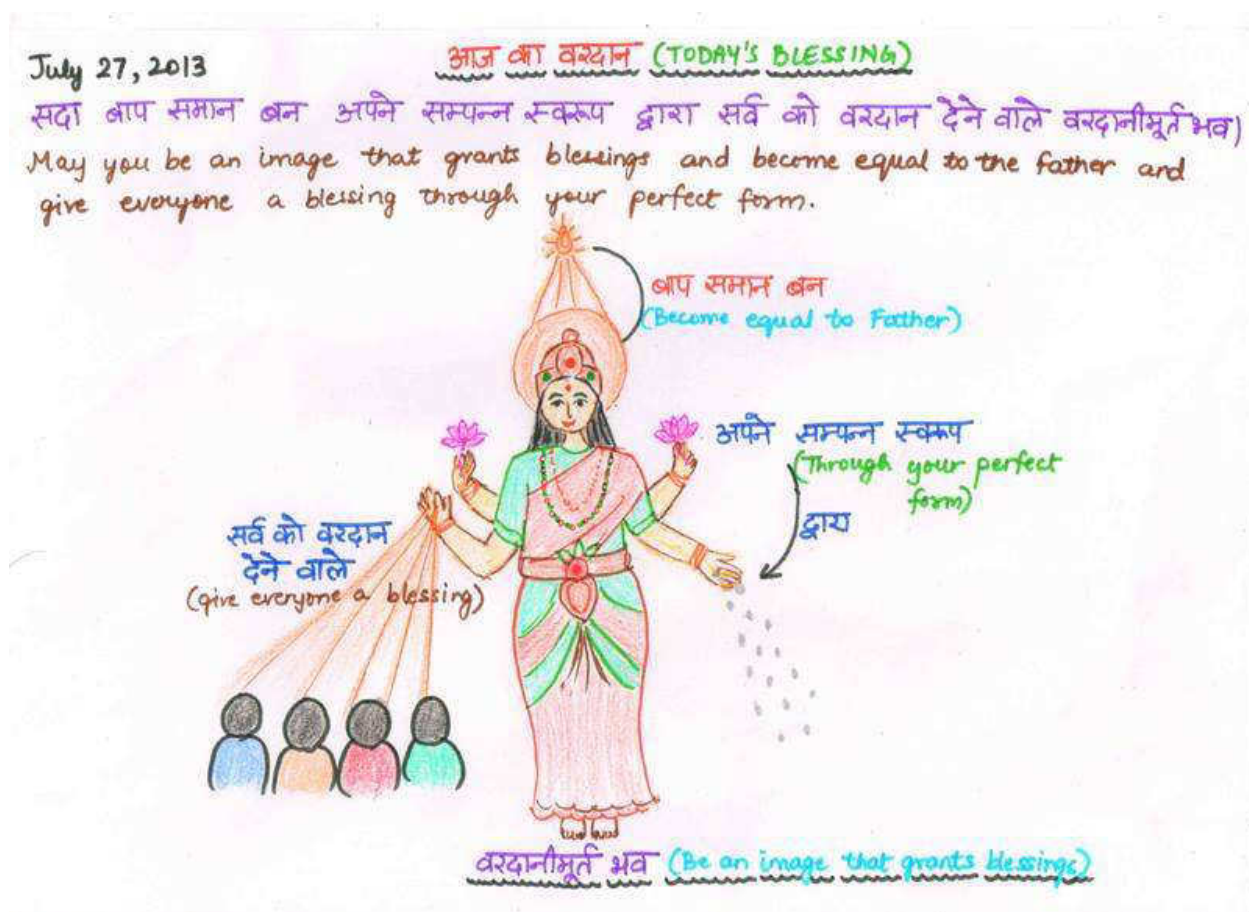 July 27, 2013
आज का वरदान (TODAY'S BLESSING)
सदा बाप समान बन अपने सम्पन्न स्वरूप द्वारा सर्व को वरदान देने वाले वरदानीमूर्त भव)
May you be an image that grants blessings and become equal to the father and
give everyone a blessing through your perfect form.
बाप समान बन
(Become equal to Father)
अपने सम्पन्न स्वरूप
(Through your perfect
form)
द्वारा
सर्व को वरदान
देने वाले
(give everyone a blessing)
वरदानीमूर्त भव (Be an image that grants blessings)